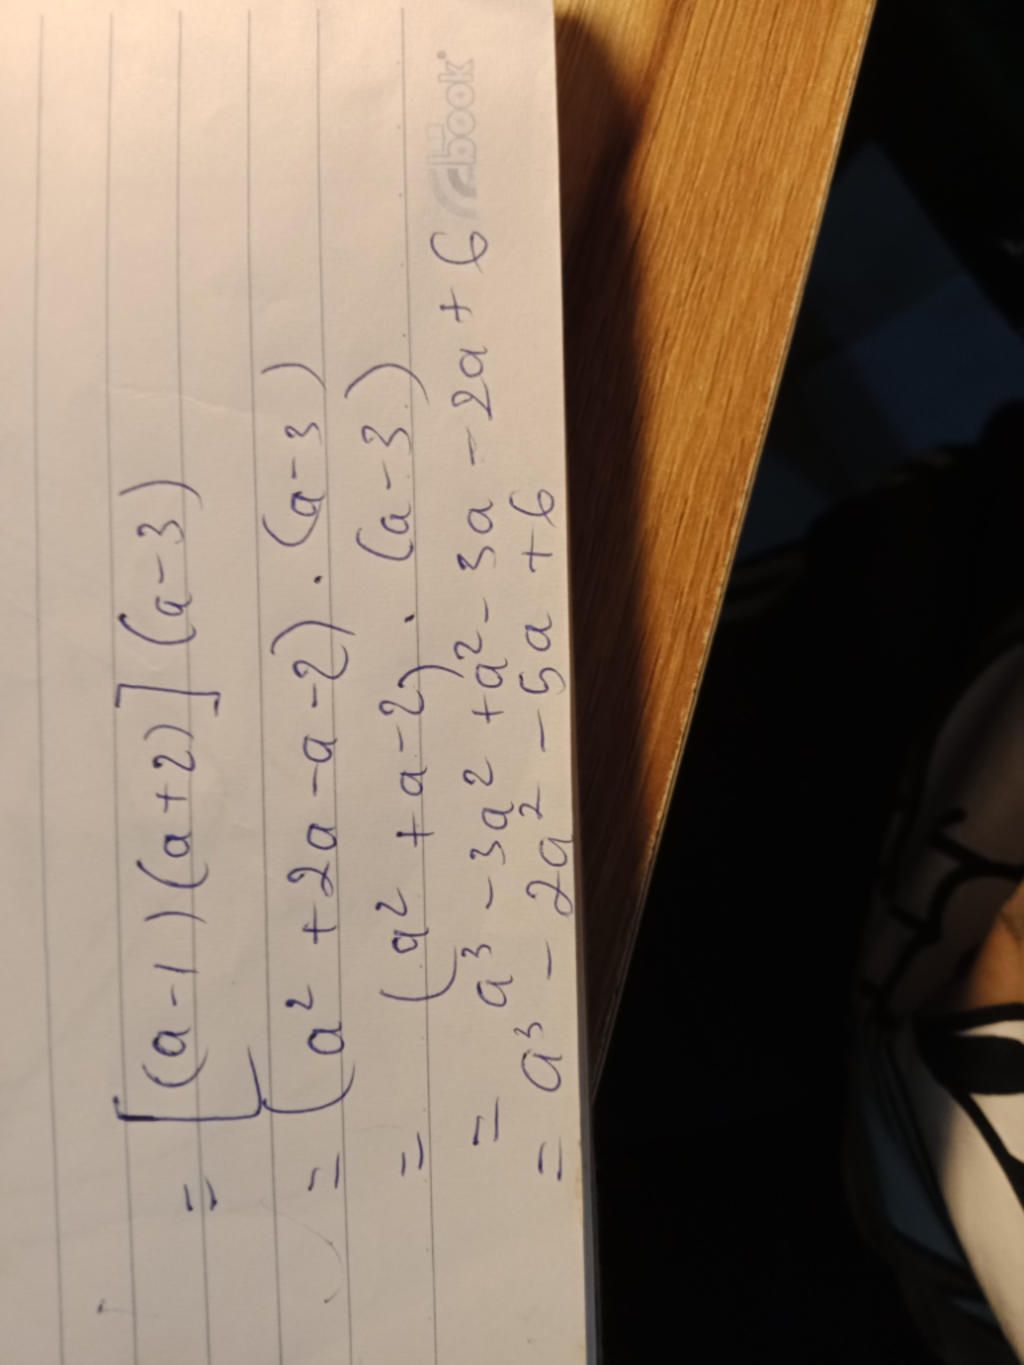 = [(a-1)(a+2)](a-3)
= (a² + 2a - a - 2) . (a-3)
= (a² + a - 2) . (a - 3)
= a³ - 3a² + a² - 3a - 2a + 6
= a³ - 2a² - 5a + 6